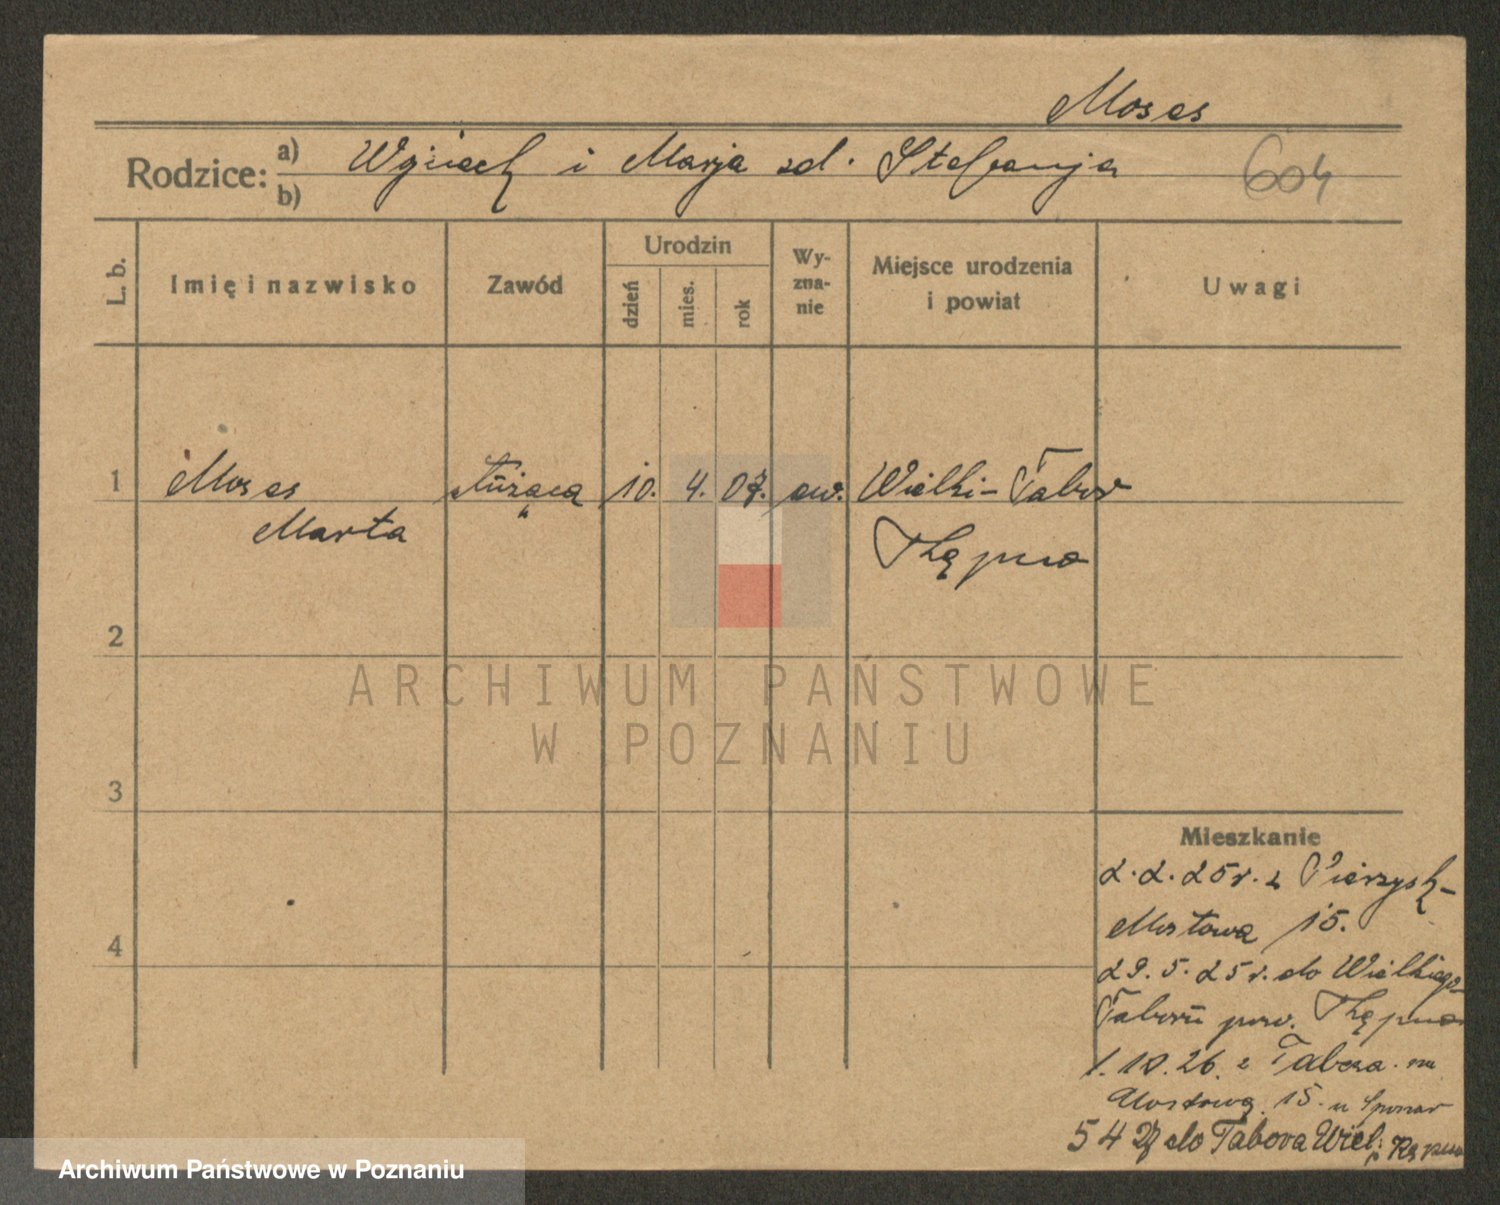 Moses
Rodzice: a) Wojciech i Marja zd. Stefanja
b)
604
L. b.
Imię i nazwisko
Zawód
Urodzin
dzień
mies.
rok
Wy-
zna-
nie
Miejsce urodzenia
i powiat
Uwagi
1 Moses służąca 10. 4. 07. ew. Wielki-Tabor
Marta Kępno
2
ARCHIWUM PAŃSTWOWE
W POZNANIU
3
Mieszkanie
2.2.25 r. z
Mostowa 15.
4
29.5.25 r. do Wielkiego-
Taboru pow. Kępno
1.10.26. z Tabora na
Mostową 15. u
5 4 27 do Tabora Wiel. p. Kępno
Archiwum Państwowe w Poznaniu